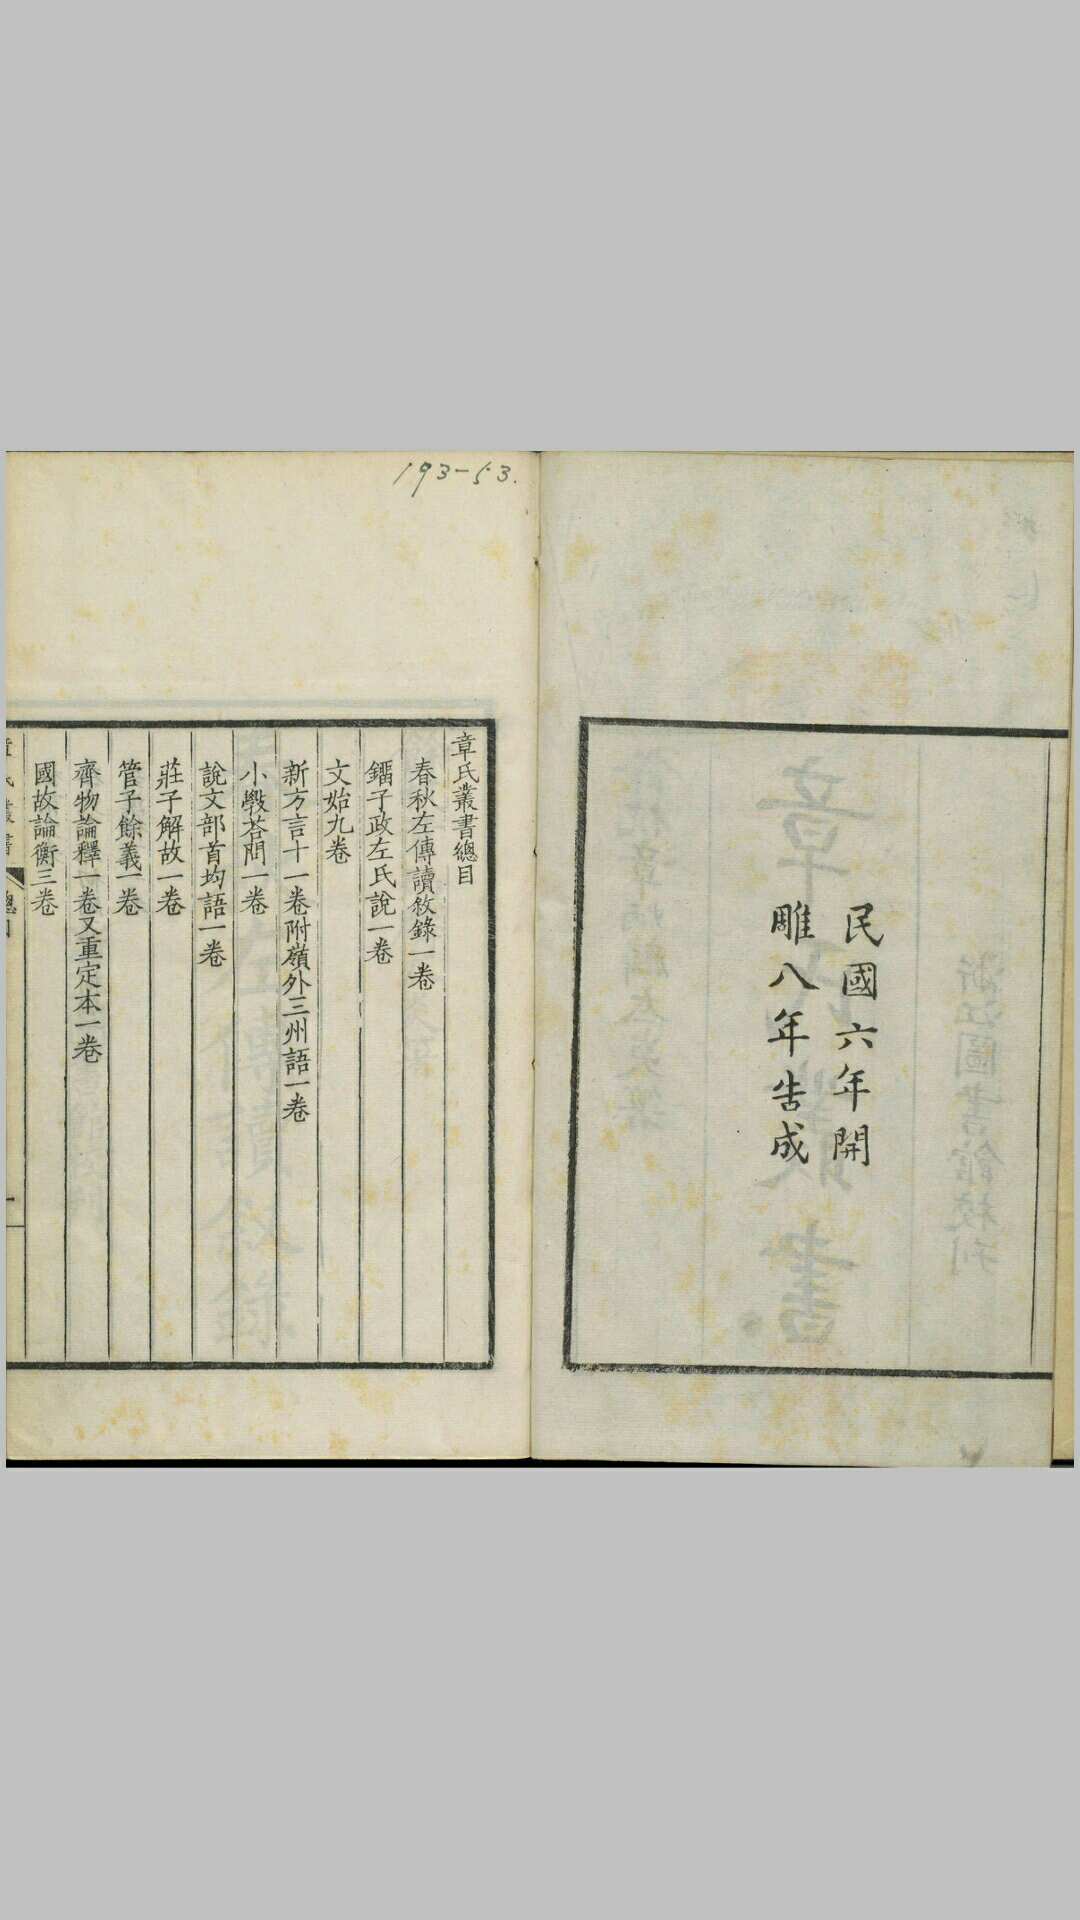 193-53.
民國六年開
雕八年告成
章氏叢書總目
春秋左傳讀敘錄一卷
鎦子政左氏說一卷
文始九卷
新方言十一卷附嶺外三州語一卷
小斆荅問一卷
說文部首均語一卷
莊子解故一卷
管子餘義一卷
齊物論釋一卷又重定本一卷
國故論衡三卷